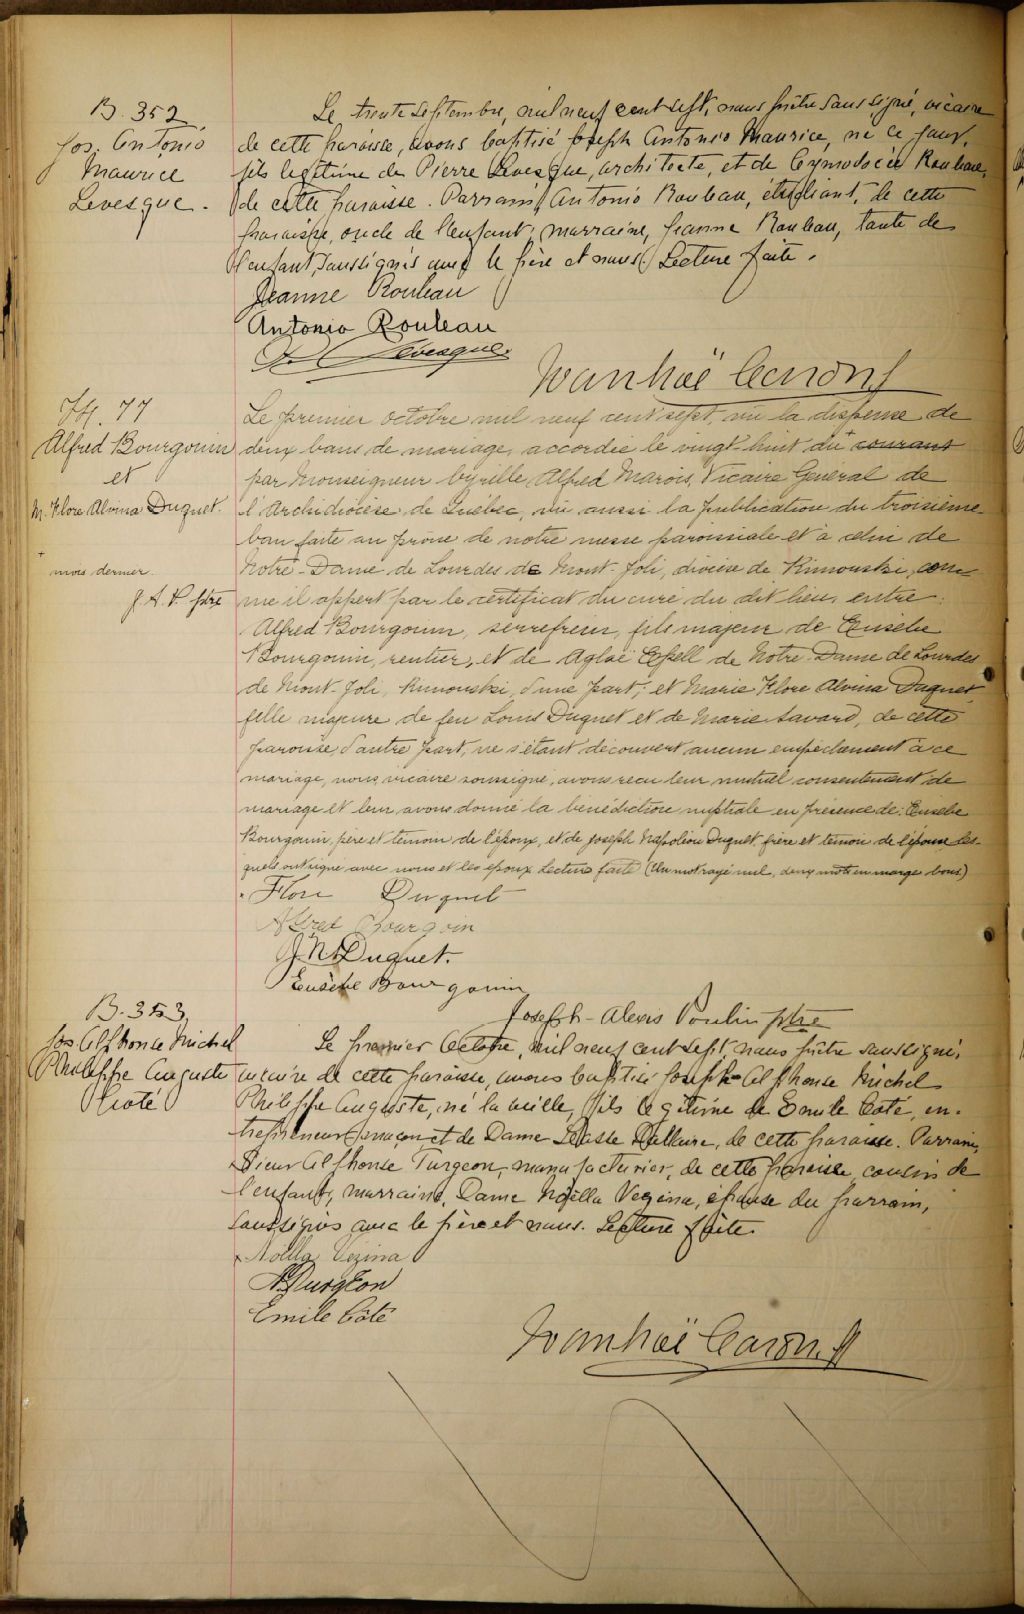 B. 352
Jos. Antonio
Maurice
Levesque.
Le trente septembre, mil neuf cent sept, nous prêtre soussigné, vicaire
de cette paroisse, avons baptisé Joseph Antonio Maurice, né ce jour,
fils légitime de Pierre Levesque, architecte, et de Cymodocée Rouleau,
de cette paroisse. Parrain, Antonio Rouleau, étudiant, de cette
paroisse, oncle de l'enfant; marraine, Jeanne Rouleau, tante de
l'enfant, soussignés avec le père et nous. Lecture faite.
Jeanne Rouleau
Antonio Rouleau
Lévesque.
Ivanhoë Caron
M. 77
Alfred Bourgouin
et
M. Flore Alvina Duquet.
+
mois dernier
J. A. P. ptre
Le premier octobre mil neuf cent sept, vu la dispense de
deux bans de mariage, accordée le vingt-huit du + courant
par Monseigneur Cyrille Alfred Marois, Vicaire Général de
l'Archidiocèse de Québec, vu aussi la publication du troisième
ban faite au prone de notre messe paroissiale et à celui de
Notre-Dame de Lourdes de Mont-Joli, diocèse de Rimouski, com-
me il appert par le certificat du curé du dit lieu, entre
Alfred Bourgouin, serrefrein, fils majeur de Eusèbe
Bourgouin, rentier, et de Aglaé de Notre-Dame de Lourdes
de Mont-Joli, Rimouski, d'une part; et Marie Flore Alvina Duquet
fille majeure de feu Louis Duquet et de Marie Savard, de cette
paroisse, d'autre part, ne s'étant découvert aucun empêchement à ce
mariage, nous, vicaire soussigné, avons reçu leur mutuel consentement de
mariage et leur avons donné la bénédiction nuptiale en présence de Eusèbe
Bourgouin, père et témoin de l'époux, et de Joseph Napoléon Duquet, frère et témoin de l'épouse les-
quels ont signé avec nous et les époux. Lecture faite (Un mot rayé nul, deux mots en marge bons)
Flore Duquet
Alfred Bourgoin
J. N. Duquet.
Eusèbe Bourgouin
Joseph-Alexis Poulin ptre
B. 353
Jos Alphonse Michel
Philippe Auguste
Coté
Le premier Octobre, mil neuf cent sept, nous prêtre soussigné,
vicaire de cette paroisse, avons baptisé Joseph Alphonse Michel
Philippe Auguste, né la veille, fils légitime de Emile Coté, en-
trepreneur maçon et de Dame Dallaire, de cette paroisse. Parrain,
Sieur Alphonse Turgeon, manufacturier, de cette paroisse, cousin de
l'enfant, marraine, Dame Noëlla Vezina, épouse du parrain,
soussignés avec le père et nous. Lecture faite.
Noëlla Vézina
A Turgeon
Emile Côté
Ivanhoë Caron